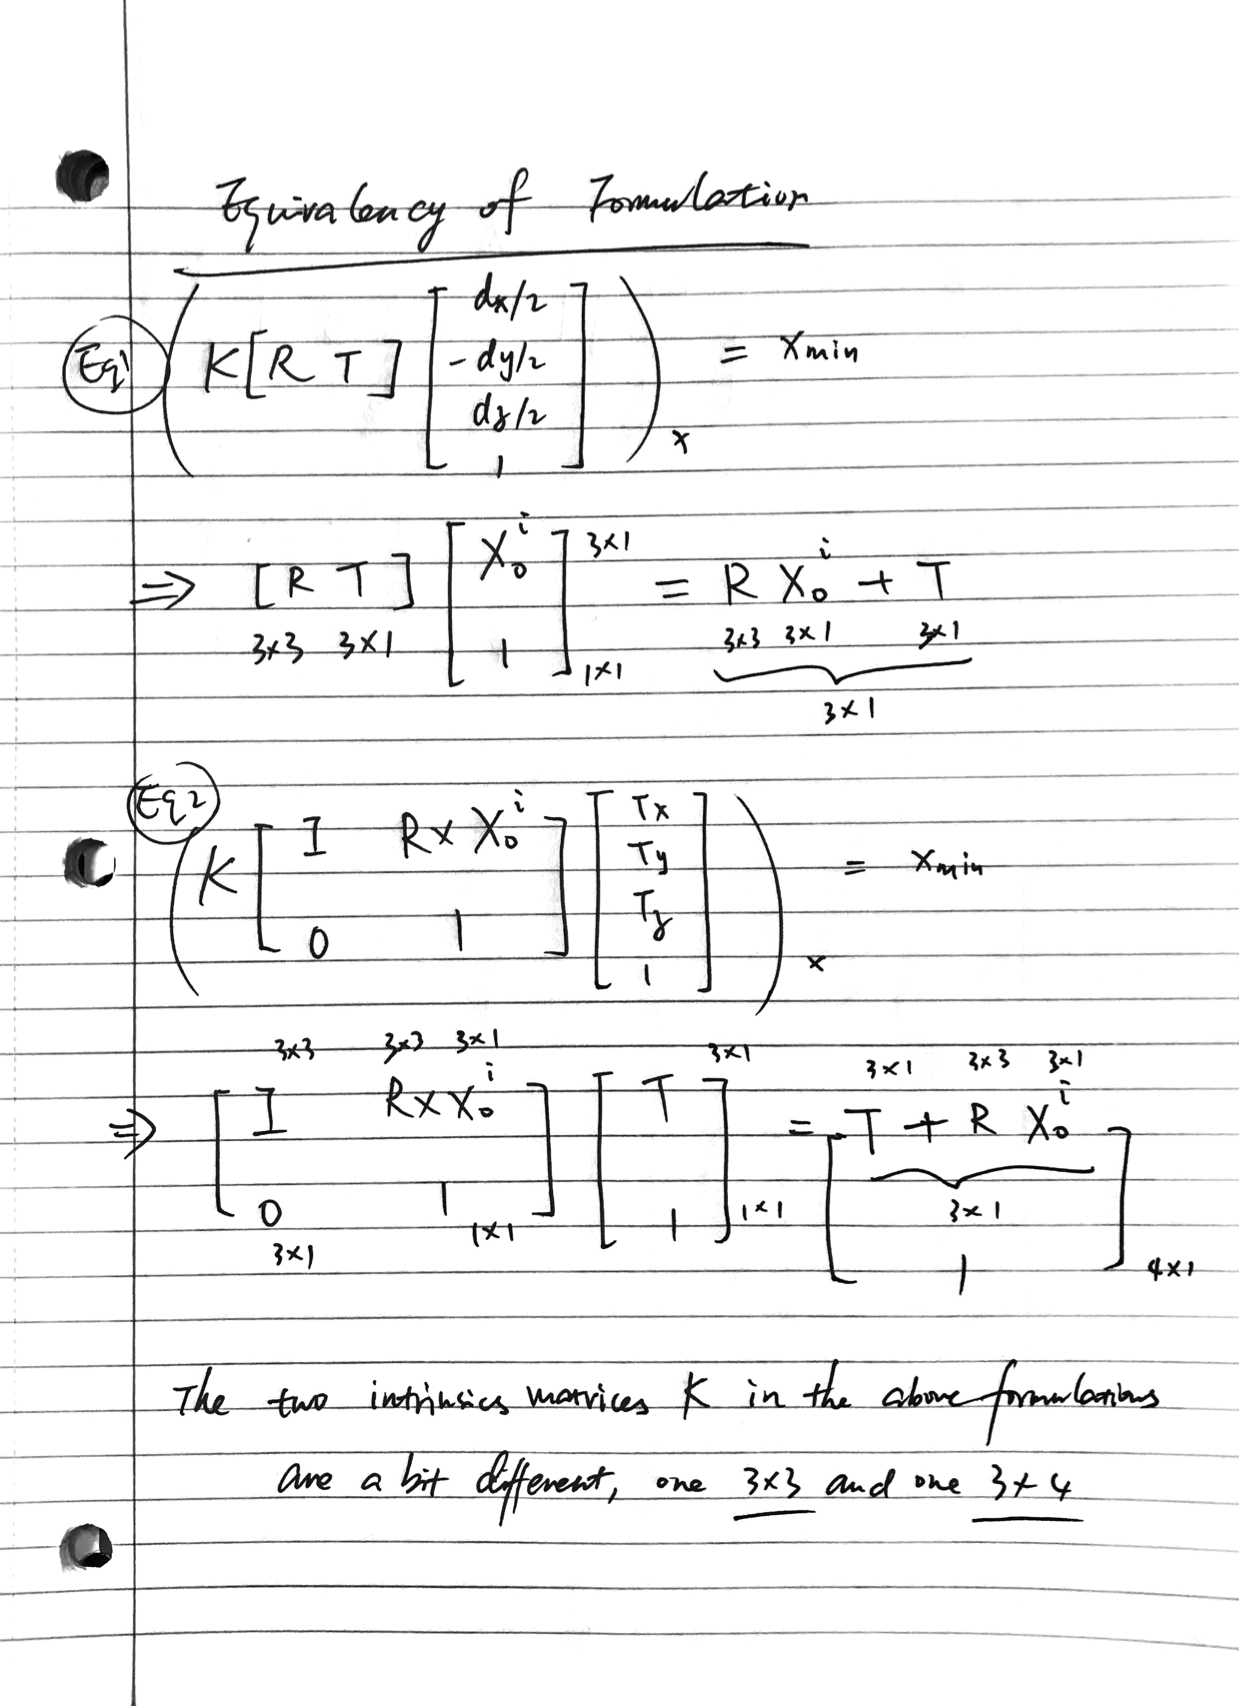 Equivalency of Formulation
Eq1 ( K [ R T ] [ dx/2 -dy/2 dz/2 1 ] )x = xmin
⇒ [ R T ] [ X₀ⁱ 1 ] = R X₀ⁱ + T
3×3 3×1 3×1 1×1 3×3 3×1 3×1
3×1
Eq2 ( K [ I R×X₀ⁱ 0 1 ] [ Tx Ty Tz 1 ] )x = xmin
3×3 3×3 3×1 3×1 3×1 3×3 3×1
⇒ [ I R×X₀ⁱ 0 1 ] [ T 1 ] = [ T + R X₀ⁱ 1 ]
3×1 1×1 1×1 3×1 4×1
The two intrinsics matrices K in the above formulations
are a bit different, one 3×3 and one 3×4